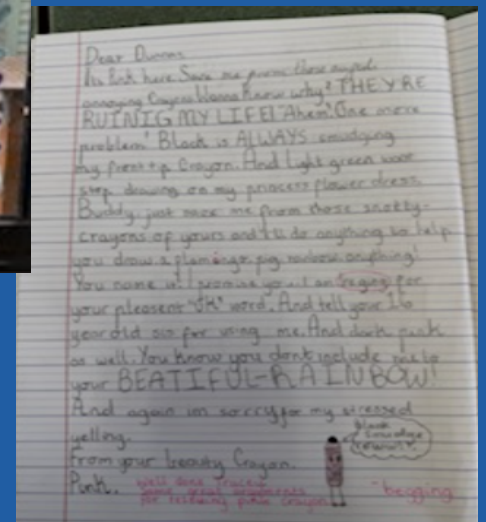 Dear Duncan
Its Pink here Save me from these stupid
annoying Crayons Wanna know why? THEY'RE
RUINIG MY LIFE! "Ahem". One more
problem! Black is ALWAYS smudging
my front tip Crayon. And Light green wont
stop drawing on my princess flower dress.
Buddy, just save me from those snotty-
crayons of yours and I'll do anything to help
you draw a flamingo, pig, rainbow anything!
You name it! I promise you! I am
your pleasent "OK" word. And tell your 16
year old sis for using me. And dark pink
as well. You know you dont include me to
your BEATIFUL-RAINBOW!
And again im sorry for my stressed
yelling.
From your beauty Crayon.
Pink.
Black
smudge
Well done
Some great arguments
for rescuing pink crayon
- begging